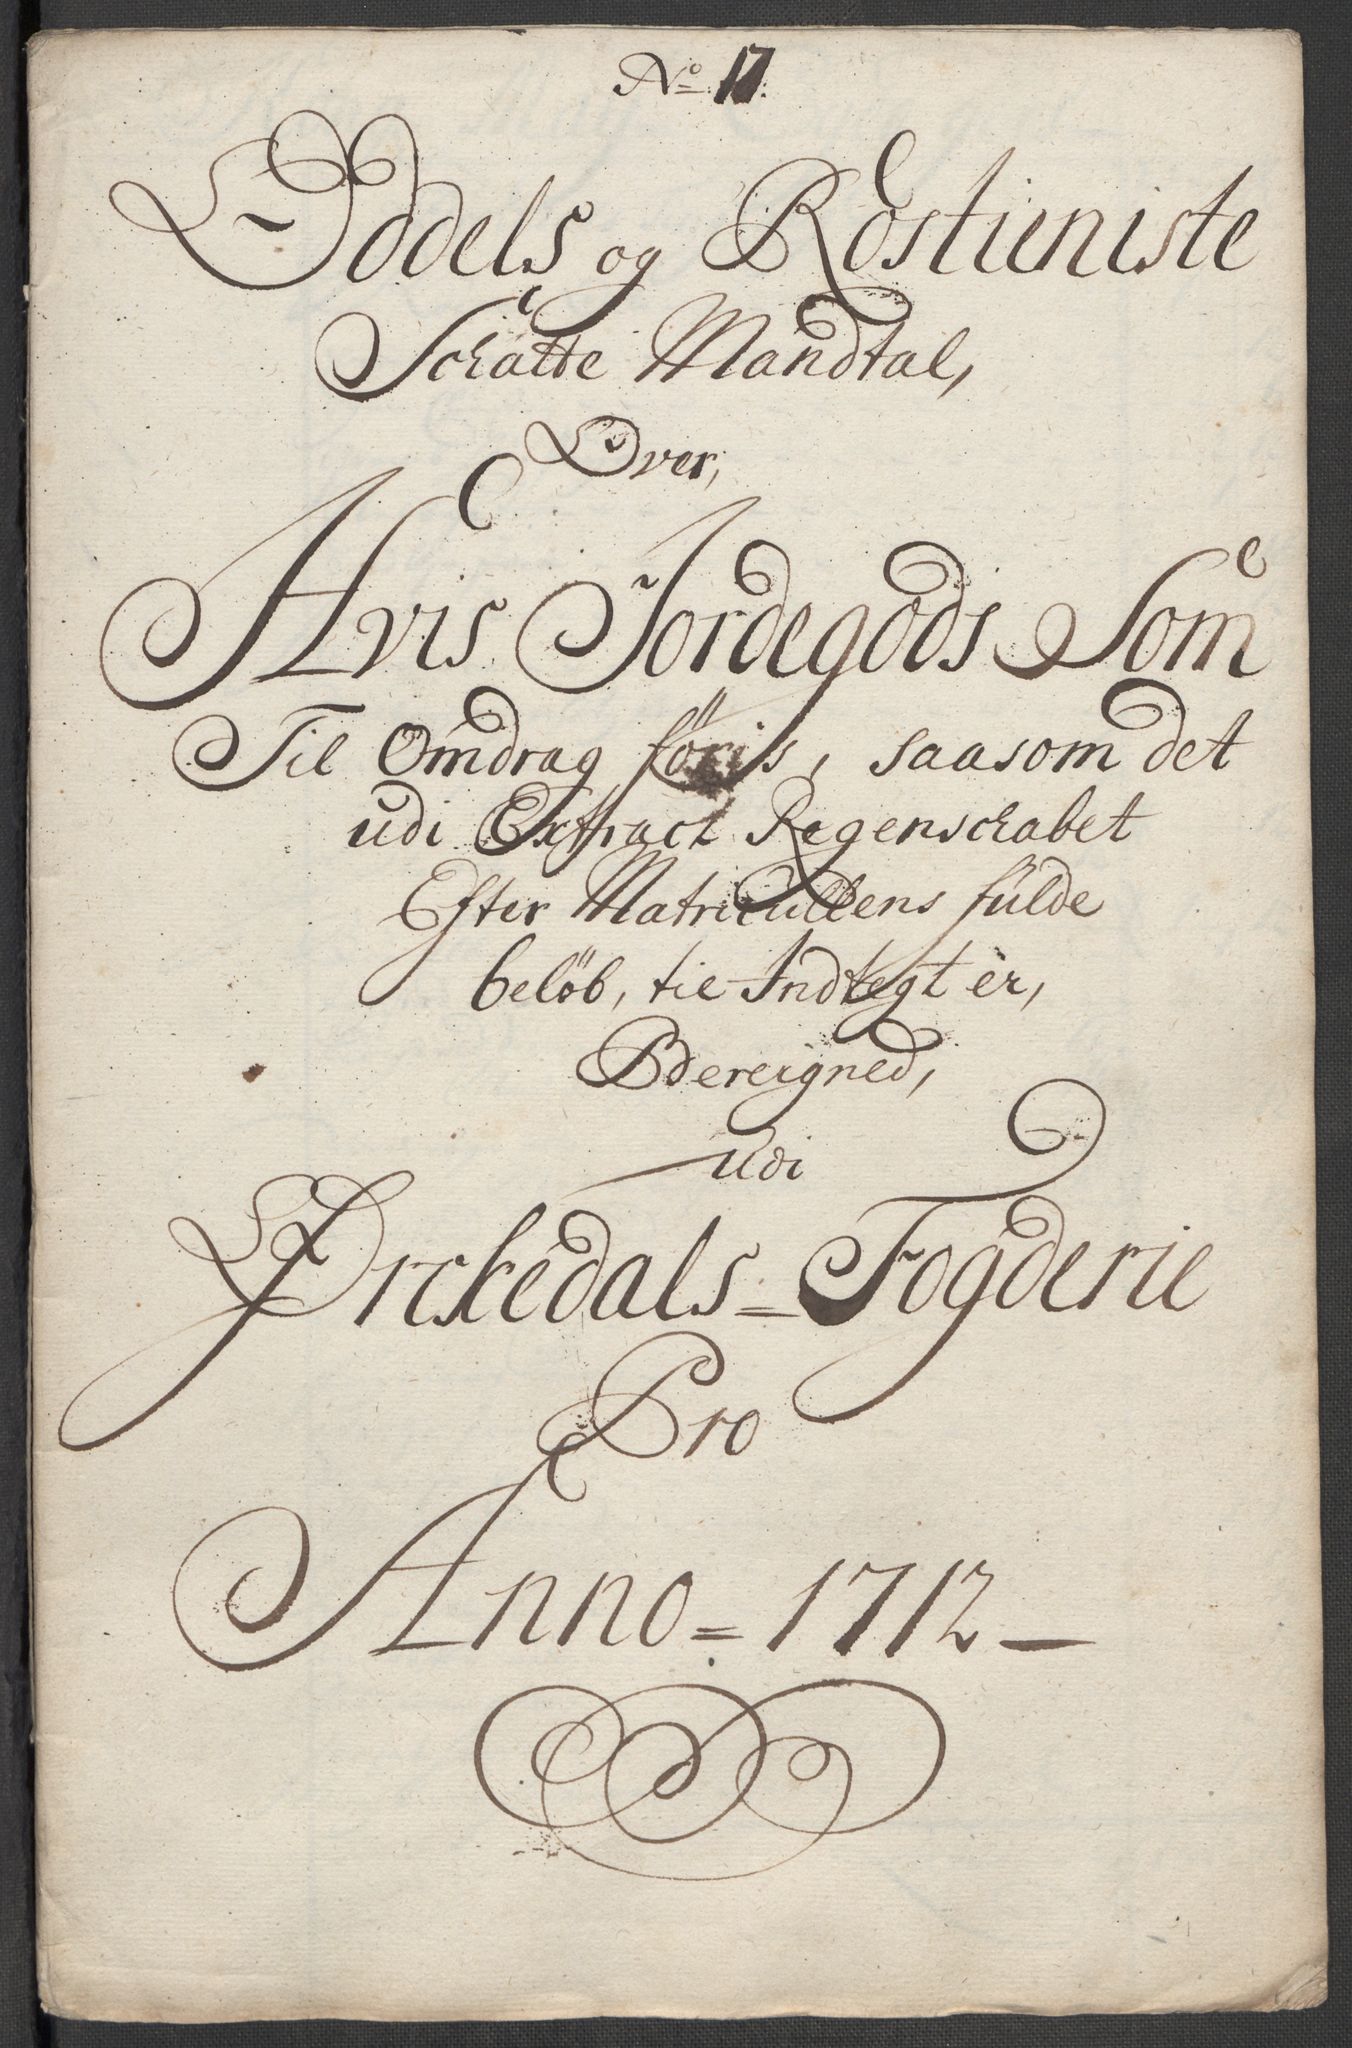 No 17.
Oddels og Rostieniste
Schatte Mandtal,
Over,
Hvis Jordegods Som
Til Omdrag føris, saasom det
udi Extract Regenschabet
Efter Matricullens fulde
beløb, til Indtegt er,
Bdereigned,
udi
Ørckedals = Fogderie
Pro
Anno = 1712 —